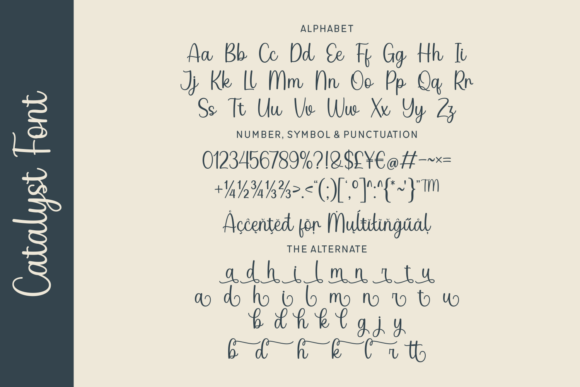 Catalyst Font
ALPHABET
Aa Bb Cc Dd Ee Ff Gg Hh Ii
Jj Kk Ll Mm Nn Oo Pp Qq Rr
Ss Tt Uu Vv Ww Xx Yy Zz
NUMBER, SYMBOL & PUNCTUATION
0123456789%?!&$£¥€@#-~×=
+¼½¾⅓⅔>.<"(;)[¨,°]^:^{"~`}"™
Àççèñţèď fòŕ Mùĺţíĺíñğüáĺ
THE ALTERNATE
a d h i l m n r t u
a d h i l m n r t u
b d h k l g j y
b d h k l r tt